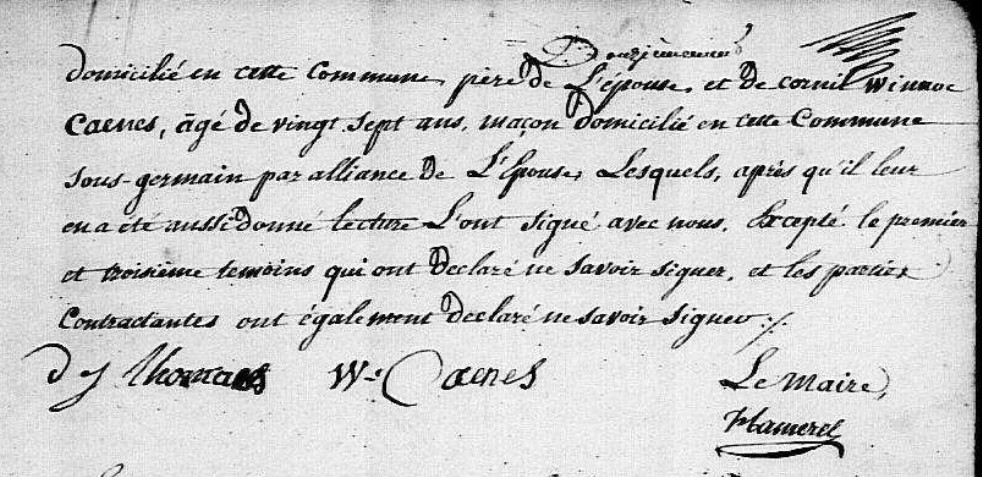 domicilié en cette Commune, père de L'épouse, et de cornil Winnoc
Caenes, âgé de vingt sept ans, maçon Domicilié en cette Commune
sous-germain par alliance de L'Epouse, Lesquels, après qu'il leur
en a été aussi donné lecture L'ont signé avec nous, Excepté le premier
et troisième temoins qui ont Declaré ne savoir signer, et les parties
Contractantes ont également Declaré ne savoir signer ./.
W. Caenes
Le Maire,